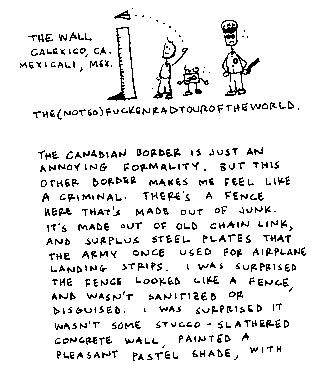 THE WALL
CALEXICO, CA.
MEXICALI, MEX.
THE(NOTSO)FUCKENRADTOUROFTHEWORLD.
THE CANADIAN BORDER IS JUST AN
ANNOYING FORMALITY. BUT THIS
OTHER BORDER MAKES ME FEEL LIKE
A CRIMINAL. THERE'S A FENCE
HERE THAT'S MADE OUT OF JUNK.
IT'S MADE OUT OF OLD CHAIN LINK,
AND SURPLUS STEEL PLATES THAT
THE ARMY ONCE USED FOR AIRPLANE
LANDING STRIPS. I WAS SURPRISED
THE FENCE LOOKED LIKE A FENCE,
AND WASN'T SANITIZED OR
DISGUISED. I WAS SURPRISED IT
WASN'T SOME STUCCO-SLATHERED
CONCRETE WALL, PAINTED A
PLEASANT PASTEL SHADE, WITH